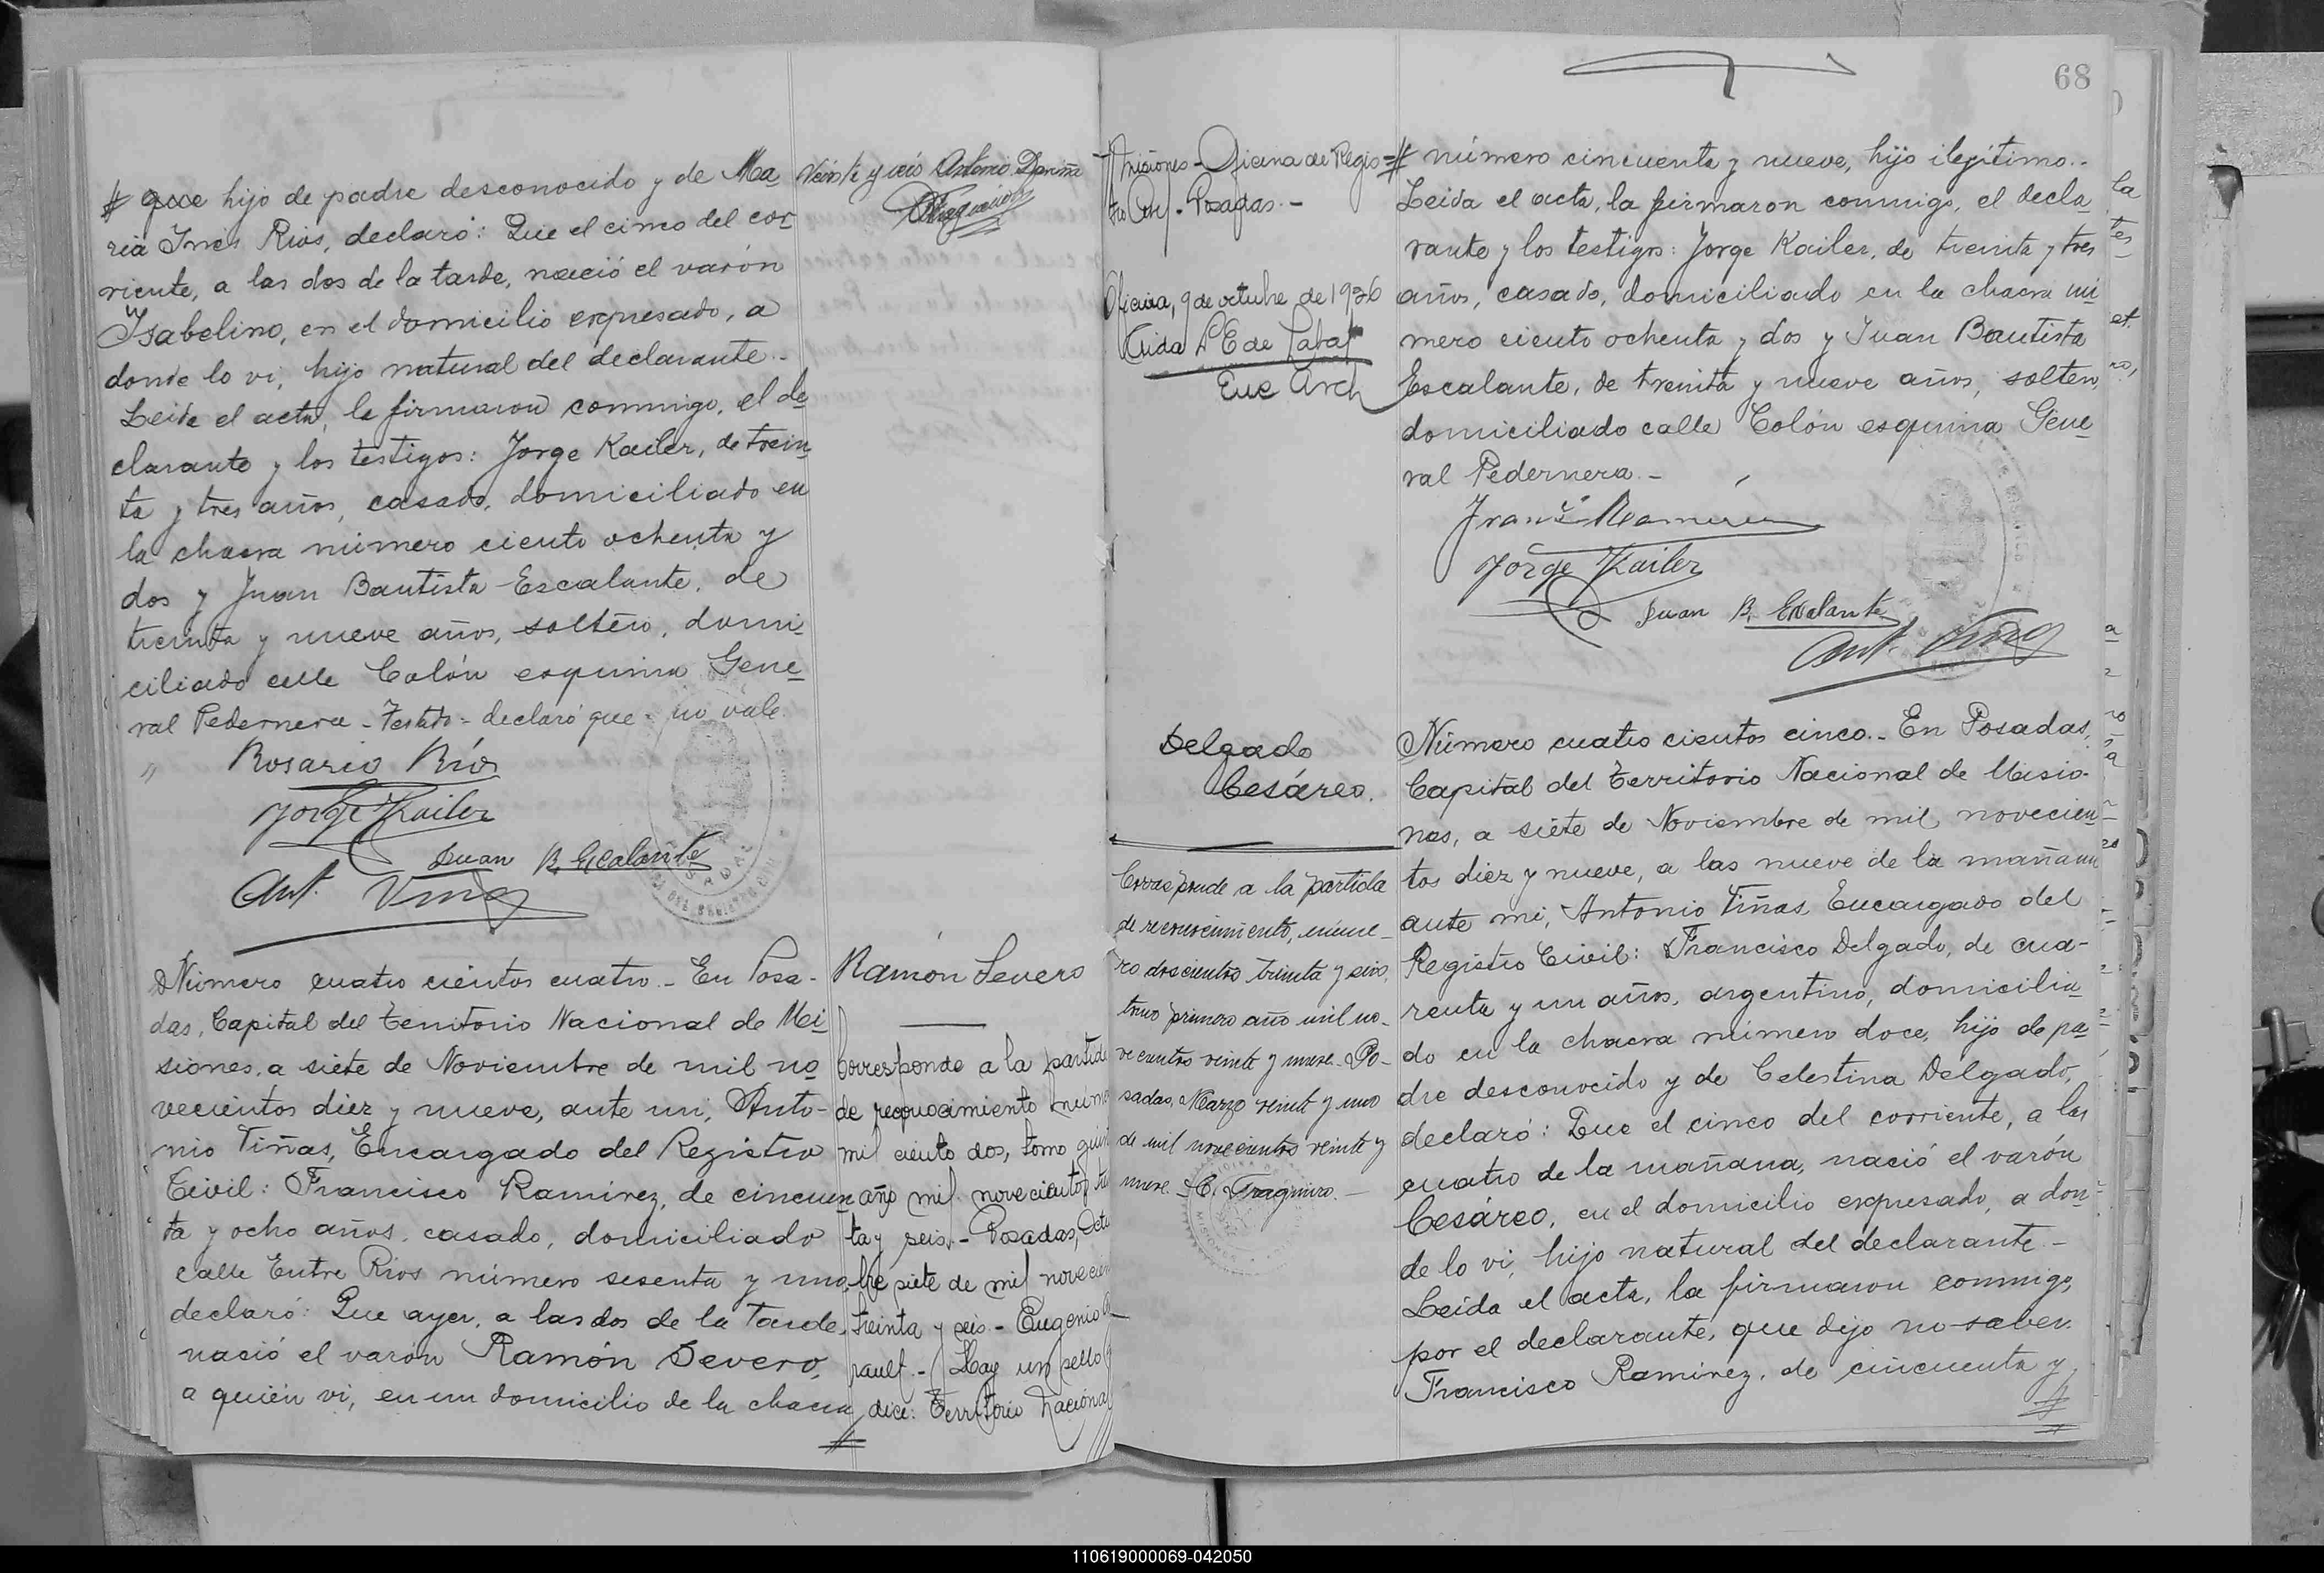 # que hijo de padre desconocido y de Ma
ria Inés Rios, declaró: Que el cinco del cor
riente, a las dos de la tarde, nació el varón
Ysabelino, en el domicilio expresado, a
donde lo vi, hijo natural del declarante.-
Leida el acta, la firmaron conmigo, el de
clarante y los testigos: Jorge Kailer, de trein
ta y tres años, casado, domiciliado en
la chacra número ciento ochenta y
dos y Juan Bautista Escalante, de
treinta y nueve años, soltero, domi
ciliado calle Colón esquina Gene
ral Pedernera - Testado = declaró que = no vale.
Rosario Ríos
Jorge Kailer
Juan B. Escalante
Ant.
Número cuatro cientos cuatro.- En Posa-
das, Capital del Territorio Nacional de Mi
siones, a siete de Noviembre de mil no
vecientos diez y nueve, ante mi, Anto-
nio Tiñas, Encargado del Registro
Civil: Francisco Ramirez, de cincuen
ta y ocho años, casado, domiciliado
calle Entre Rios número sesenta y uno,
declaró: Que ayer, a las dos de la tarde,
nació el varón Ramón Severo,
a quién vi, en un domicilio de la chacra
#
Veinte y seis Antonio
Ramón Severo
Corresponde a la partida
de reconocimiento núme
mil ciento dos, tomo
año mil novecientos
ta y seis.- Posadas, Octu
bre siete de mil novecien
treinta y seis - Eugenio
rault.- (Hay un sello
dice: Territorio Naciona
68
Misiones - Oficina de Regis=
tro Civ - Posadas.-
Oficina, 9 de octubre de 1936
Enc Arch
Delgado
Cesáreo.
Corresponde a la partida
de reconocimiento, núme-
ro doscientos treinta y seis,
tomo primero año mil no-
vecientos veinte y nueve.- Po-
sadas, Marzo veinte y uno
de mil novecientos veinte y
nueve.- C. Fragueiro.-
# número cincuenta y nueve, hijo ilegítimo.-
Leida el acta, la firmaron conmigo, el decla
rante y los testigos: Jorge Kailer, de treinta y tres
años, casado, domiciliado en la chacra nú
mero ciento ochenta y dos y Juan Bautista
Escalante, de treinta y nueve años, soltero,
domiciliado calle Colón esquina Gene
ral Pedernera.-
Ramirez
Jorge Kailer
Juan B. Escalante
Ant.
Número cuatro cientos cinco.- En Posadas,
Capital del Territorio Nacional de Misio-
nes, a siete de Noviembre de mil novecien
tos diez y nueve, a las nueve de la mañana
ante mi, Antonio Tiñas, Encargado del
Registro Civil: Francisco Delgado, de cua-
renta y un años, argentino, domicilia
do en la chacra número doce, hijo de pa
dre desconocido y de Celestina Delgado,
declaró: Que el cinco del corriente, a las
cuatro de la mañana, nació el varón
Cesáreo, en el domicilio expresado, a don
de lo vi, hijo natural del declarante.-
Leida el acta, la firmaron conmigo,
por el declarante, que dijo no saber
Francisco Ramirez, de cincuenta y
#
110619000069-042050